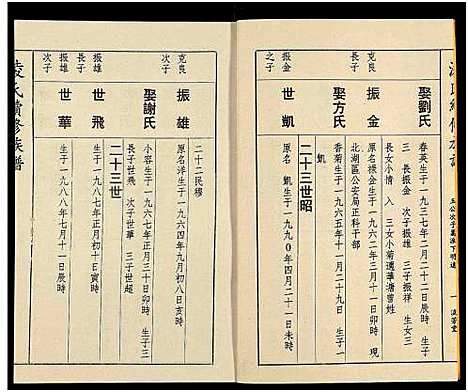 娶劉氏
春英生于一九三七年二月二十二日辰時 生子
三 長振金 次子振雄 三子振祥 生女三
長女小情 入 三女小菊適華塘曾姓
克良
長子
振金
原名操金生于一九六二年三月十一日寅時 現
北湖區公安局正科干部
娶方氏
香菊生于一九六五年十一月二十九日 生子一
凱
二十三世昭
振金
之子
世凱
原名 凱生于一九九〇年四月二十一日未時
五公次子萬派下明
一
二十二民穆
克良
次子
振雄
原名洋生于一九六四年九月初八日亥時
娶謝氏
小容生于一九六七年正月三十日卯時 生子三
長子世飛 次子世華 三子世超
二十三世
振雄
長子
世飛
生于一九八六年正月初十日寅時
振雄
次子
世華
生于一九八八年七月十一日辰時
凌氏續修族譜